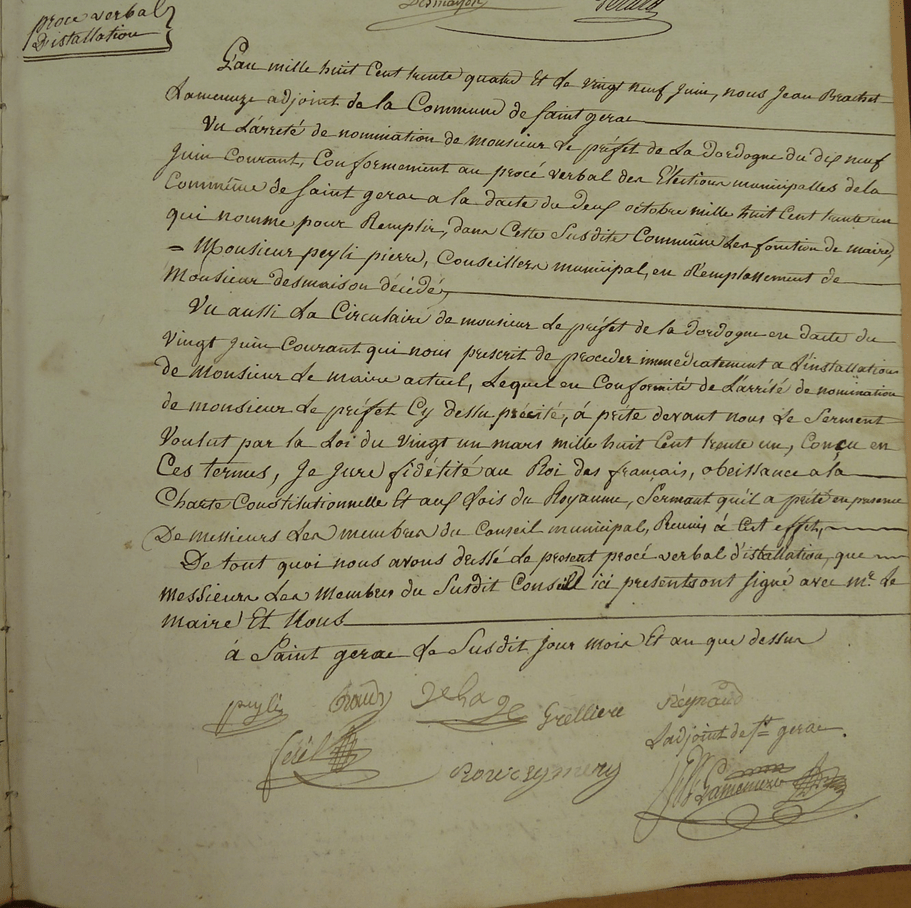 procé verbal
D'istallation
Desmaison
L'an mille huit Cent trente quatre Et Le vingt neuf Juin, nous Jean Brachet
Lameneize adjoint de la Commune de Saint gerac
Vu L'arreté de nomination de monsieur Le préfet de La Dordogne du dix neuf
Juin Courant, Conformement au procé verbal des Elections municipalles de la
Commune de Saint gerac a la dacte du deux octobre mille huit Cent trente un
qui nomme pour Remplir, dans Cette Susdite Commune Les fonction de maire,
= Monsieur peyli pierre, Conseiller municipal, en Remplassement de
Monsieur desmaison décédé,
Vu aussi La Circulaire de monsieur Le préfet de la Dordogne en dacte du
Vingt Juin Courant qui nous prescrit de proceder immediatement a L'installation
de Monsieur Le maire actuel, Lequel en Conformité de L'arrété de nomination
de monsieur Le préfet Cy dessu précité, á prete devant nous Le Serment
Voulut par la Loi du vingt un mars mille huit Cent trente un, Concu en
Ces termes, Je Jure fidélité au Roi des français, obeissance a la
Charte Constitutionnelle Et aux Lois du Royaume, Sermant qu'il a prété en presence
De messieurs Les membres du Conseil municipal, Reunis á Cet effet,
De tout quoi nous avons dressé Le present procé verbal d'istallation, que
Messieurs Les Membres du Susdit Conseill ici presents ont signé avec mr. Le
maire Et Nous
á Saint gerac Le Susdit Jour mois Et an que dessus
peylis Delage Grelliere Réynaud
L'adjoint de St gerac.
Lameneize